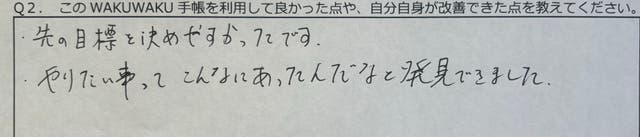 Q２．このWAKUWAKU手帳を利用して良かった点や、自分自身が改善できた点を教えてください。
・先の目標を決めやすかったです.
・やりたい事って こんなにあったんだなと発見できました.